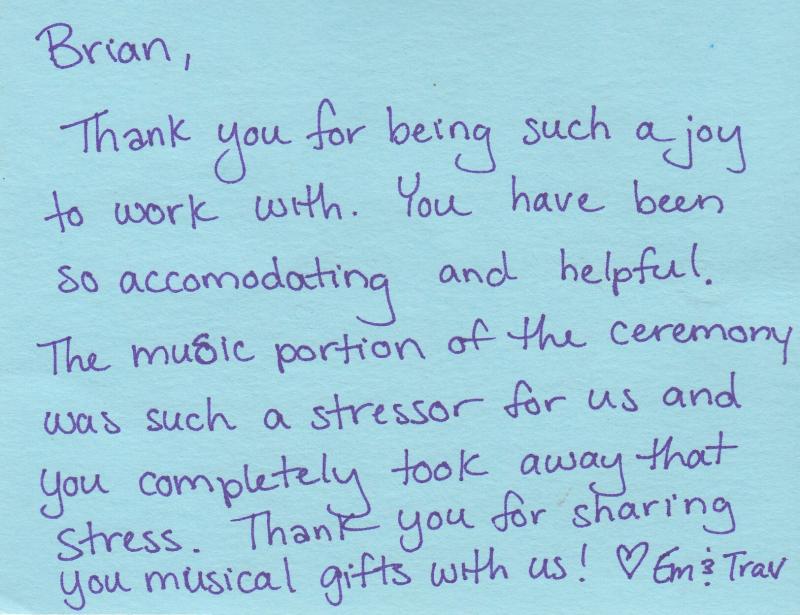 Brian,
Thank you for being such a joy
to work with. You have been
so accomodating and helpful.
The music portion of the ceremony
was such a stressor for us and
you completely took away that
stress. Thank you for sharing
you musical gifts with us! ♡ Em & Trav